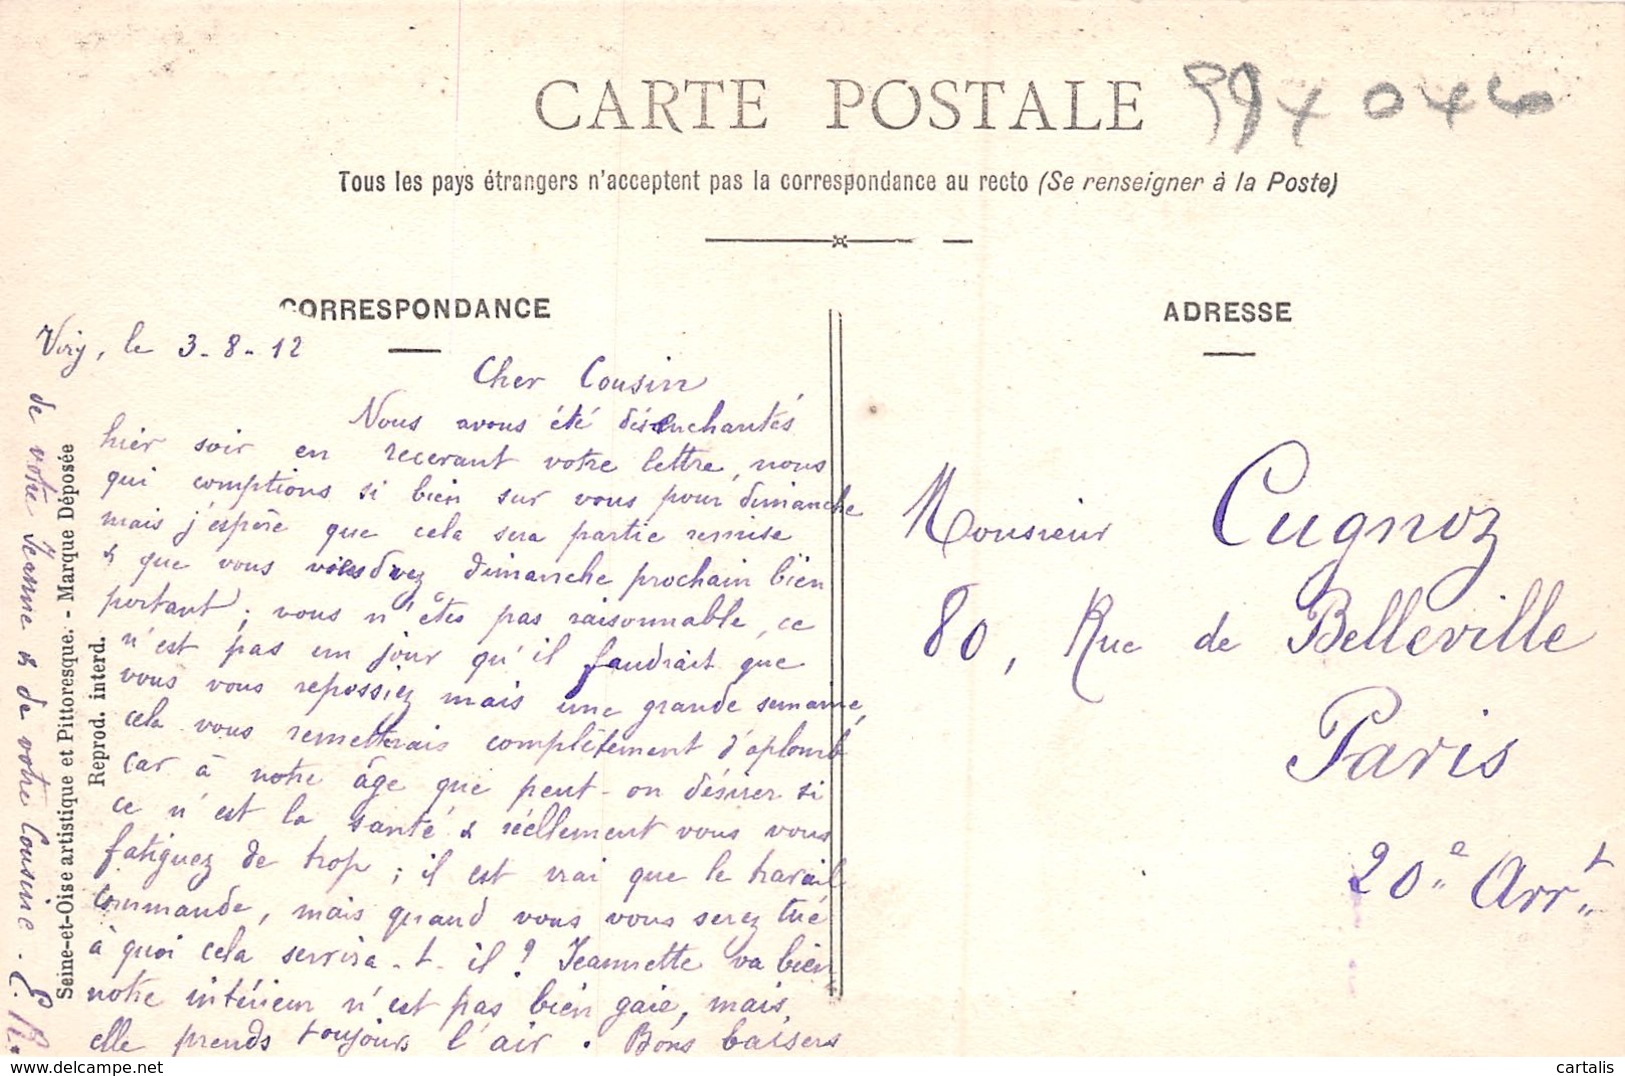 CARTE POSTALE
Tous les pays étrangers n'acceptent pas la correspondance au recto (Se renseigner à la Poste)
CORRESPONDANCE
Viry, le 3-8-12
Cher Cousin
Nous avons été désenchantés
hier soir en recevant votre lettre, nous
qui comptions si bien sur vous pour dimanche
mais j'espère que cela sera partie remise
& que vous viendrez dimanche prochain bien
portant ; vous n'êtes pas raisonnable, ce
n'est pas un jour qu'il faudrait que
vous vous repossiez mais une grande semaine,
cela vous remetterais complètement d'aplomb
car à notre âge que peut-on désirer si
ce n'est la santé & réellement vous vous
fatiguez de trop ; il est vrai que le travail
commande, mais quand vous vous serez tué
à quoi cela servira-t-il ? Jeannette va bien
notre intérieur n'est pas bien gaie, mais,
elle prends toujours l'air . Bons baisers
de votre Jeanne & de votre Cousine. E. R.
Seine-et-Oise artistique et Pittoresque. - Marque Déposée
Reprod. interd.
ADRESSE
Monsieur Cugnoz
80, Rue de Belleville
Paris
20e Arrt
cartalis
delcampe.net